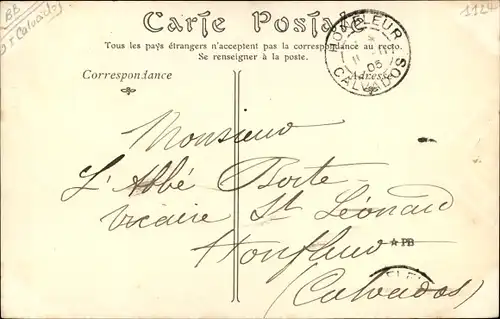 BB
Calvados
1124
Carte Postale
Tous les pays étrangers n'acceptent pas la correspondance au recto.
Se renseigner à la poste.
Correspondance
Adresse
HONFLEUR
05
CALVADOS
Monsieur
L'Abbé Borte
Vicaire St Léonard
Honfleur
★PB
(Calvados)